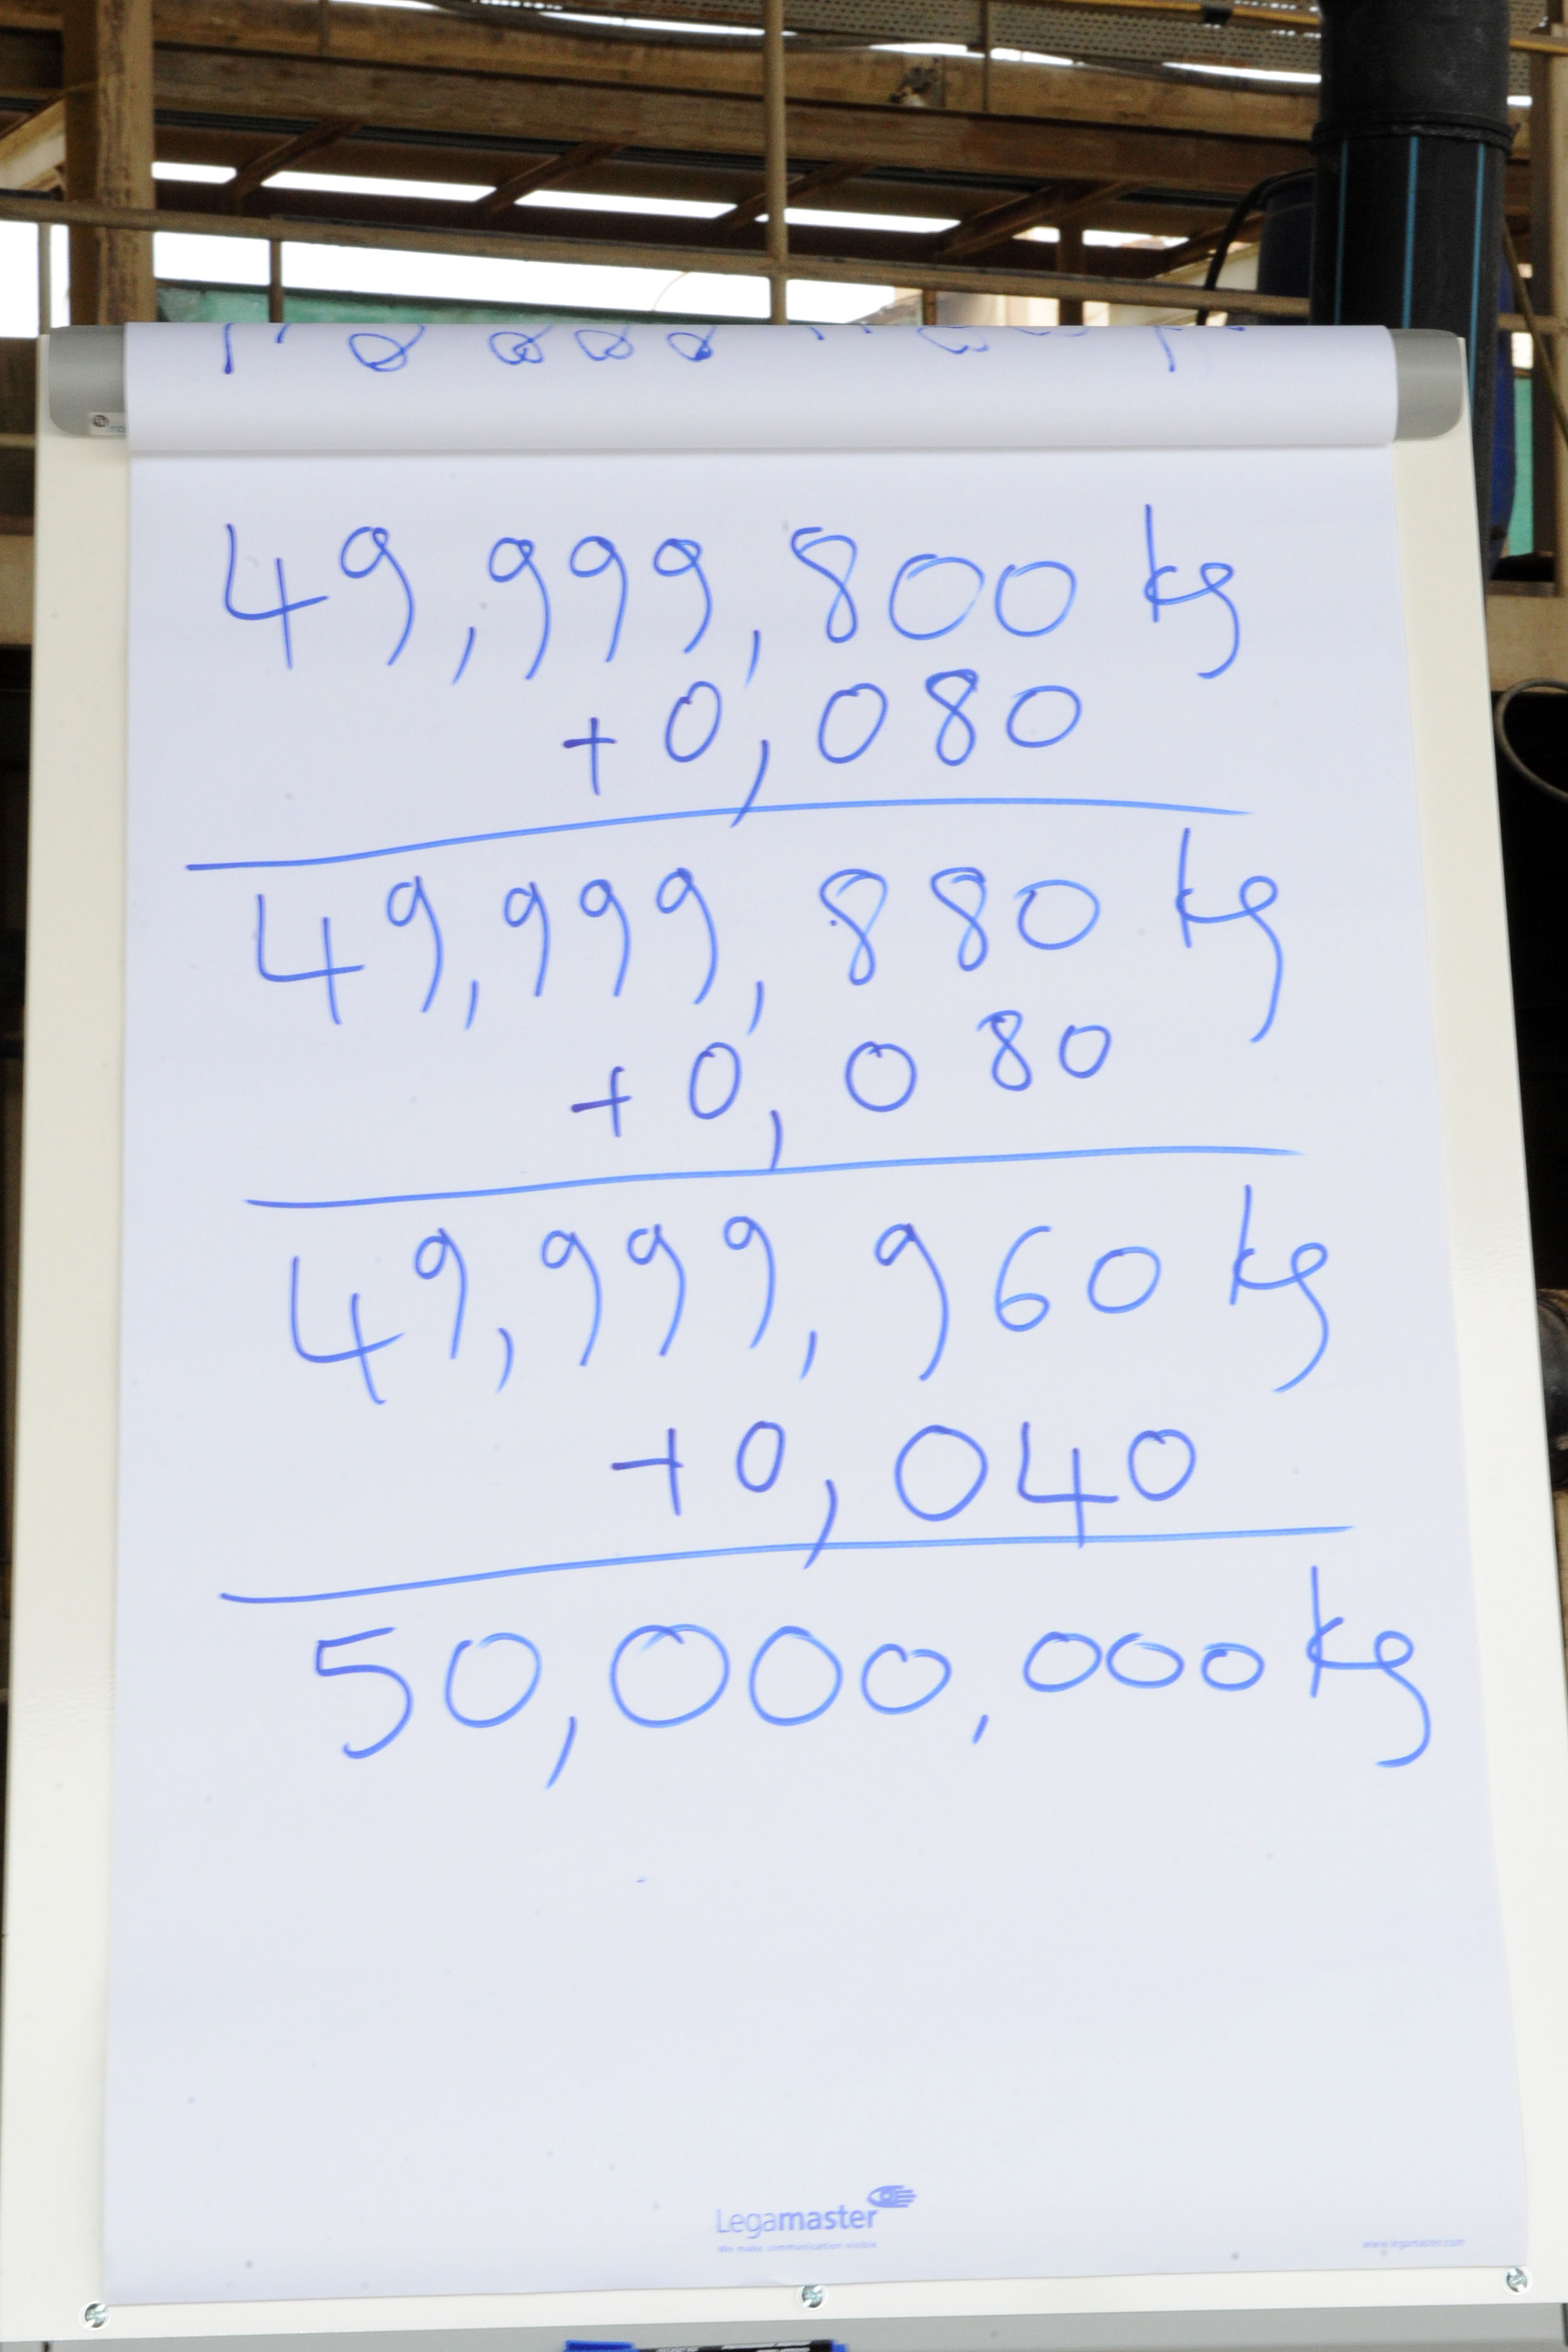 49,999,800 kg
+0,080
49,999,880 kg
+0,080
49,999,960 kg
+0,040
50,000,000 kg
Legamaster
We make communication visible
www.legamaster.com